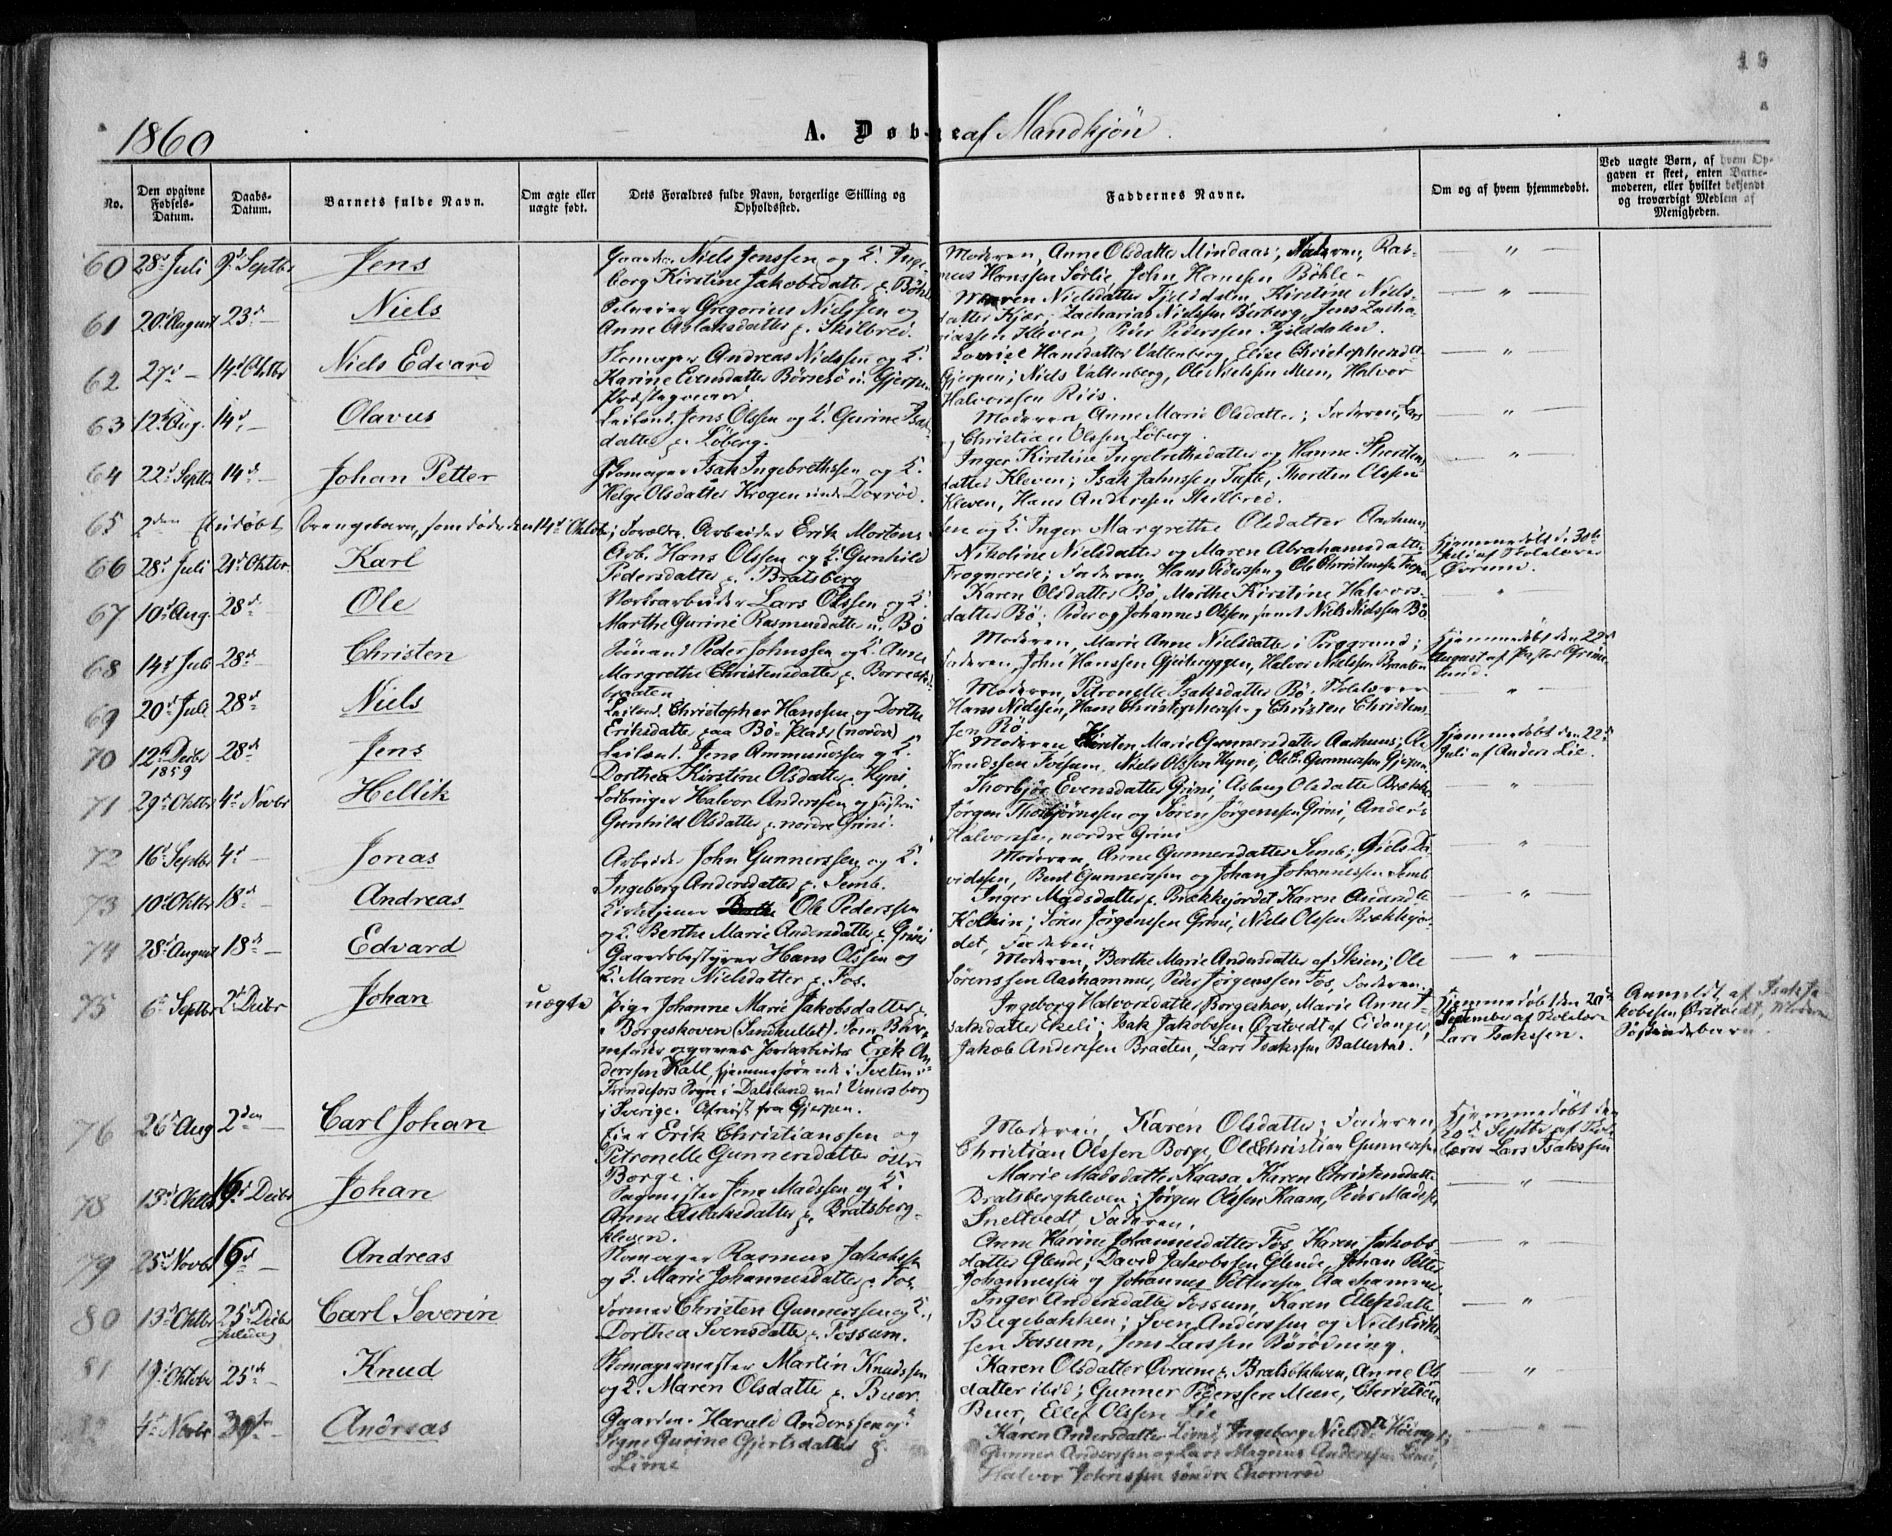 1860
A. Døbte af Mandkjøn
No.
Den opgivne Fødsels-Datum.
Daabs-Datum.
Barnets fulde Navn.
Om ægte eller uægte født.
Dets Forældres fulde Navn, borgerlige Stilling og Opholdssted.
Faddernes Navne.
Om og af hvem hjemmedøbt.
Ved uægte Børn, af hvem Opgaven er skeet, enten Barnemoderen, eller hvilket bekjendt og troværdigt Medlem af Menigheden.
60 28d Juli 9d Septbr Jens
Niels Jenssen og K. Inge
borg Kirstine Jakobsdatter
Moderen, Anne Olsdatter Mindaas; Ras-
mus Hanssen Sørlie, John Hanssen Bøhle
61 20d August 23d — Niels
Gregorius Nielssen og
Anne Aslaksdatter p. Skilbred.
Maren Nielsdatter Fjelddalen, Kirstine Niels-
datter Kjær; Zacharias Nielssen Berberg, Jens Zacha-
riassen Kleven, Peder Pederssen Fjelddalen.
62 27d — 14d Oktbr Niels Edvard
Skomager Andreas Nielssen og K.
Karine Evensdatter Børsesø u. Gjerpen
Præstegaard.
Hansdatter Vattenberg, Elise Christophersdtr
Gjerpen; Niels Vattenberg, Ole Nielssen Meen, Halvor
Halvorssen Riis.
63 12te Aug. 14d — Olavus
Leiland. Jens Olssen og K. Gurine Isak-
datter p. Løberg.
Moderen Anne Marie Olsdatter; Faderen, Lars
og Christian Olssen Løberg.
64 22d Septbr 14d — Johan Petter
Skomager Isak Ingebrethssen og K.
Helge Olsdatter Krogen under Dovrød.
Inger Kirstine Ingebrethsdatter og Hanne Thorsten-
datter Kleven; Isak Jahnssen Tufte, Thorsten Olssen
Kleven, Hans Anderssen Skilbred.
65 2den Et udøbt Drengebarn, som døde den 14d Oktbr; Forældre Arbeider Erik Mortens-
sen og K. Inger Margrethe Olsdatter Aarhuus
66 28d Juli 21d Oktbr Karl
Arb. Hans Olssen og K. Gunhild
Pedersdatter p. Bratsberg
Nikoline Nielsdatter og Maren Abrahamsdatter
Frogneréie; Faderen Hans Pederssen og Ole Christenssen
Hjemmedøbt d. 30te
Juli af Skolelærer
Øvrum.
67 10d Aug. 28d Ole
Lars Olssen og K.
Marthe Gurine Rasmusdatter u. Bø
Karen Olsdatter Bø, Marthe Kirstine Halvors-
datter Bø; Peder og Johannes Olssen samt Niels Nielssen Bø
68 14d Juli 28d — Christen
Sømand Peder Johnssen og K. Anne
Margrethe Christensdatter p.
braaten
Moderen, Marie Anne Nielsdatter i Porsgrund;
Faderen, John Hanssen Gjeiteryggen, Halvor Nielssen Braaten
Hjemmedøbt den 22d
August af Pastor Grime-
lund.
69 20d Juli 28d Niels
Leiland. Christopher Hanssen og Dorthe
Eriksdatter paa Bø-Plads (nordre)
Moderen, Petronelle Isaksdatter Bø. Skolelærer
Hans Nielssen, Hans Christopherssen og Christen Christens-
sen Bø
70 12te Decbr 1859 28d Jens
Leilænd. Jens Ammundssen og K.
Dorthea Kirstine Olsdatter p. Hyni
Moderen Kirsten Marie Gunnersdatter Aarhuus; Ole
Knudssen Fossum, Niels Olssen Hyni, Ole Gunnerssen Gjerpen
Hjemmedøbt den 22d
Juli af Anders Lie.
71 29d Oktbr 4d Novbr Hellik
Halvor Anderssen og Hustru
Gunhild Olsdatter p. nordre Grini.
Thorbjør Evensdatter Grini, Aslaug Olsdatter Brække,
Jørgen Thorbjørnssen og Søren Jørgenssen Grini, Anders
Halvorssen, nordre Grini
72 16d Septbr 4d — Jonas
Arbeider John Gunnerssen og K.
Ingeborg Andersdatter p. Semb.
Moderen, Anne Gunnersdatter Semb; Niels Da-
vidssen, Bent Gunnerssen og Johan Johannessen Semb
73 10d Oktbr 18d Andreas
Kirketjener Ole Pederssen
og K. Berthe Marie Andersdatter p. Grini
Inger Madsdatter p. Brækkejordet Karen Andersdtr
Kolkin; Søren Jørgenssen Grini, Niels Olssen Brækkejor-
det, Faderen
74 28d August 18d — Edvard
Gaardsbestyrer Hans Olssen og
K. Maren Nielsdatter p. Fos.
Moderen, Berthe Marie Andersdatter af Skien; Ole
Sørenssen Aashammer, Peder Jørgenssen Fos, Faderen.
75 6te Septbr 2d Decbr Johan uægte
Pige Johanne Marie Jakobsdatter
i Borgeskoven (Sundkullet). Som Bar-
nefader opgives Jordarbeider Erik An-
derssen Kall, hjemmehørende i Tveten i
Frendefors Sogn i Dalsland ved Venersborg
i Sverige. Afreist fra Gjerpen.
Ingeborg Halvorsdatter Borgeskov, Marie Anne I-
saksdatter Ekeli; Isak Jakobssen Ørstvedt af Eidanger,
Jakob Anderssen Braaten, Lars Isakssen Ballestad.
Hjemmedøbt den 20de
September af Skolelærer
Lars Isakssen.
Anmeldt af Isak Ja-
kobssen Ørstvedt, Moderens
Søskendebarn.
76 26d Aug 2den Carl Johan
Eier Erik Christianssen og
Petronelle Gunnersdatter østre
Borge.
Moderen, Karen Olsdatter; Faderen,
Christian Olssen Borge, Ole Christian Gunnerssen
Hjemmedøbt den
20d Septbr af Skole-
lærer Lars Isakssen
78 13d Oktbr 16d Decbr Johan
Sagmester Jens Madssen og K.
Anne Aslaksdatter p. Bratsberg-
kleven.
Marie Madsdatter Kaasa, Karen Christensdatter
Bratsbergkleven; Jørgen Olssen Kaasa, Peder Madssen
Sneltvedt, Faderen.
79 25d Novbr 16d — Andreas
Skomager Rasmus Jakobssen
og K. Marie Johannesdatter p. Fos
Anne Karine Johannesdatter Fos, Karen Jakobs-
datter Glende; David Jakobssen Glende, Johan Petter
Johannessen og Johannes Petterssen Aashammer
80 13d Oktbr 25d Decbr Juledag Carl Severin
Former Christen Gunnerssen og K.
Dorthea Svensdatter p. Fossum.
Inger Andersdatter Fossum, Karen Ellefsdatter
Blegebakken; Sven Anderssen og Niels Erik-
sen Fossum, Jens Larssen Børødning.
81 19d Oktober 25de — Knud
Skomagermester Martin Knudssen
og K. Maren Olsdatter p. Buer.
Karen Olsdatter Øvrum p. Bratsbkleven, Anne Ols-
datter ibid; Gunner Pederssen Meese, Christian
Buer, Ellef Olssen Lie
82 4d Novbr 30te — Andreas
Gaardm. Harald Anderssen og K.
Signe Gurine Gjertsdatter p.
Limie
Karen Andersdatter Limi, Ingeborg Nielsdr.
Gunner Anderssen og Lars Magnus Anderssen Limi,
Halvor Johnssen søndre